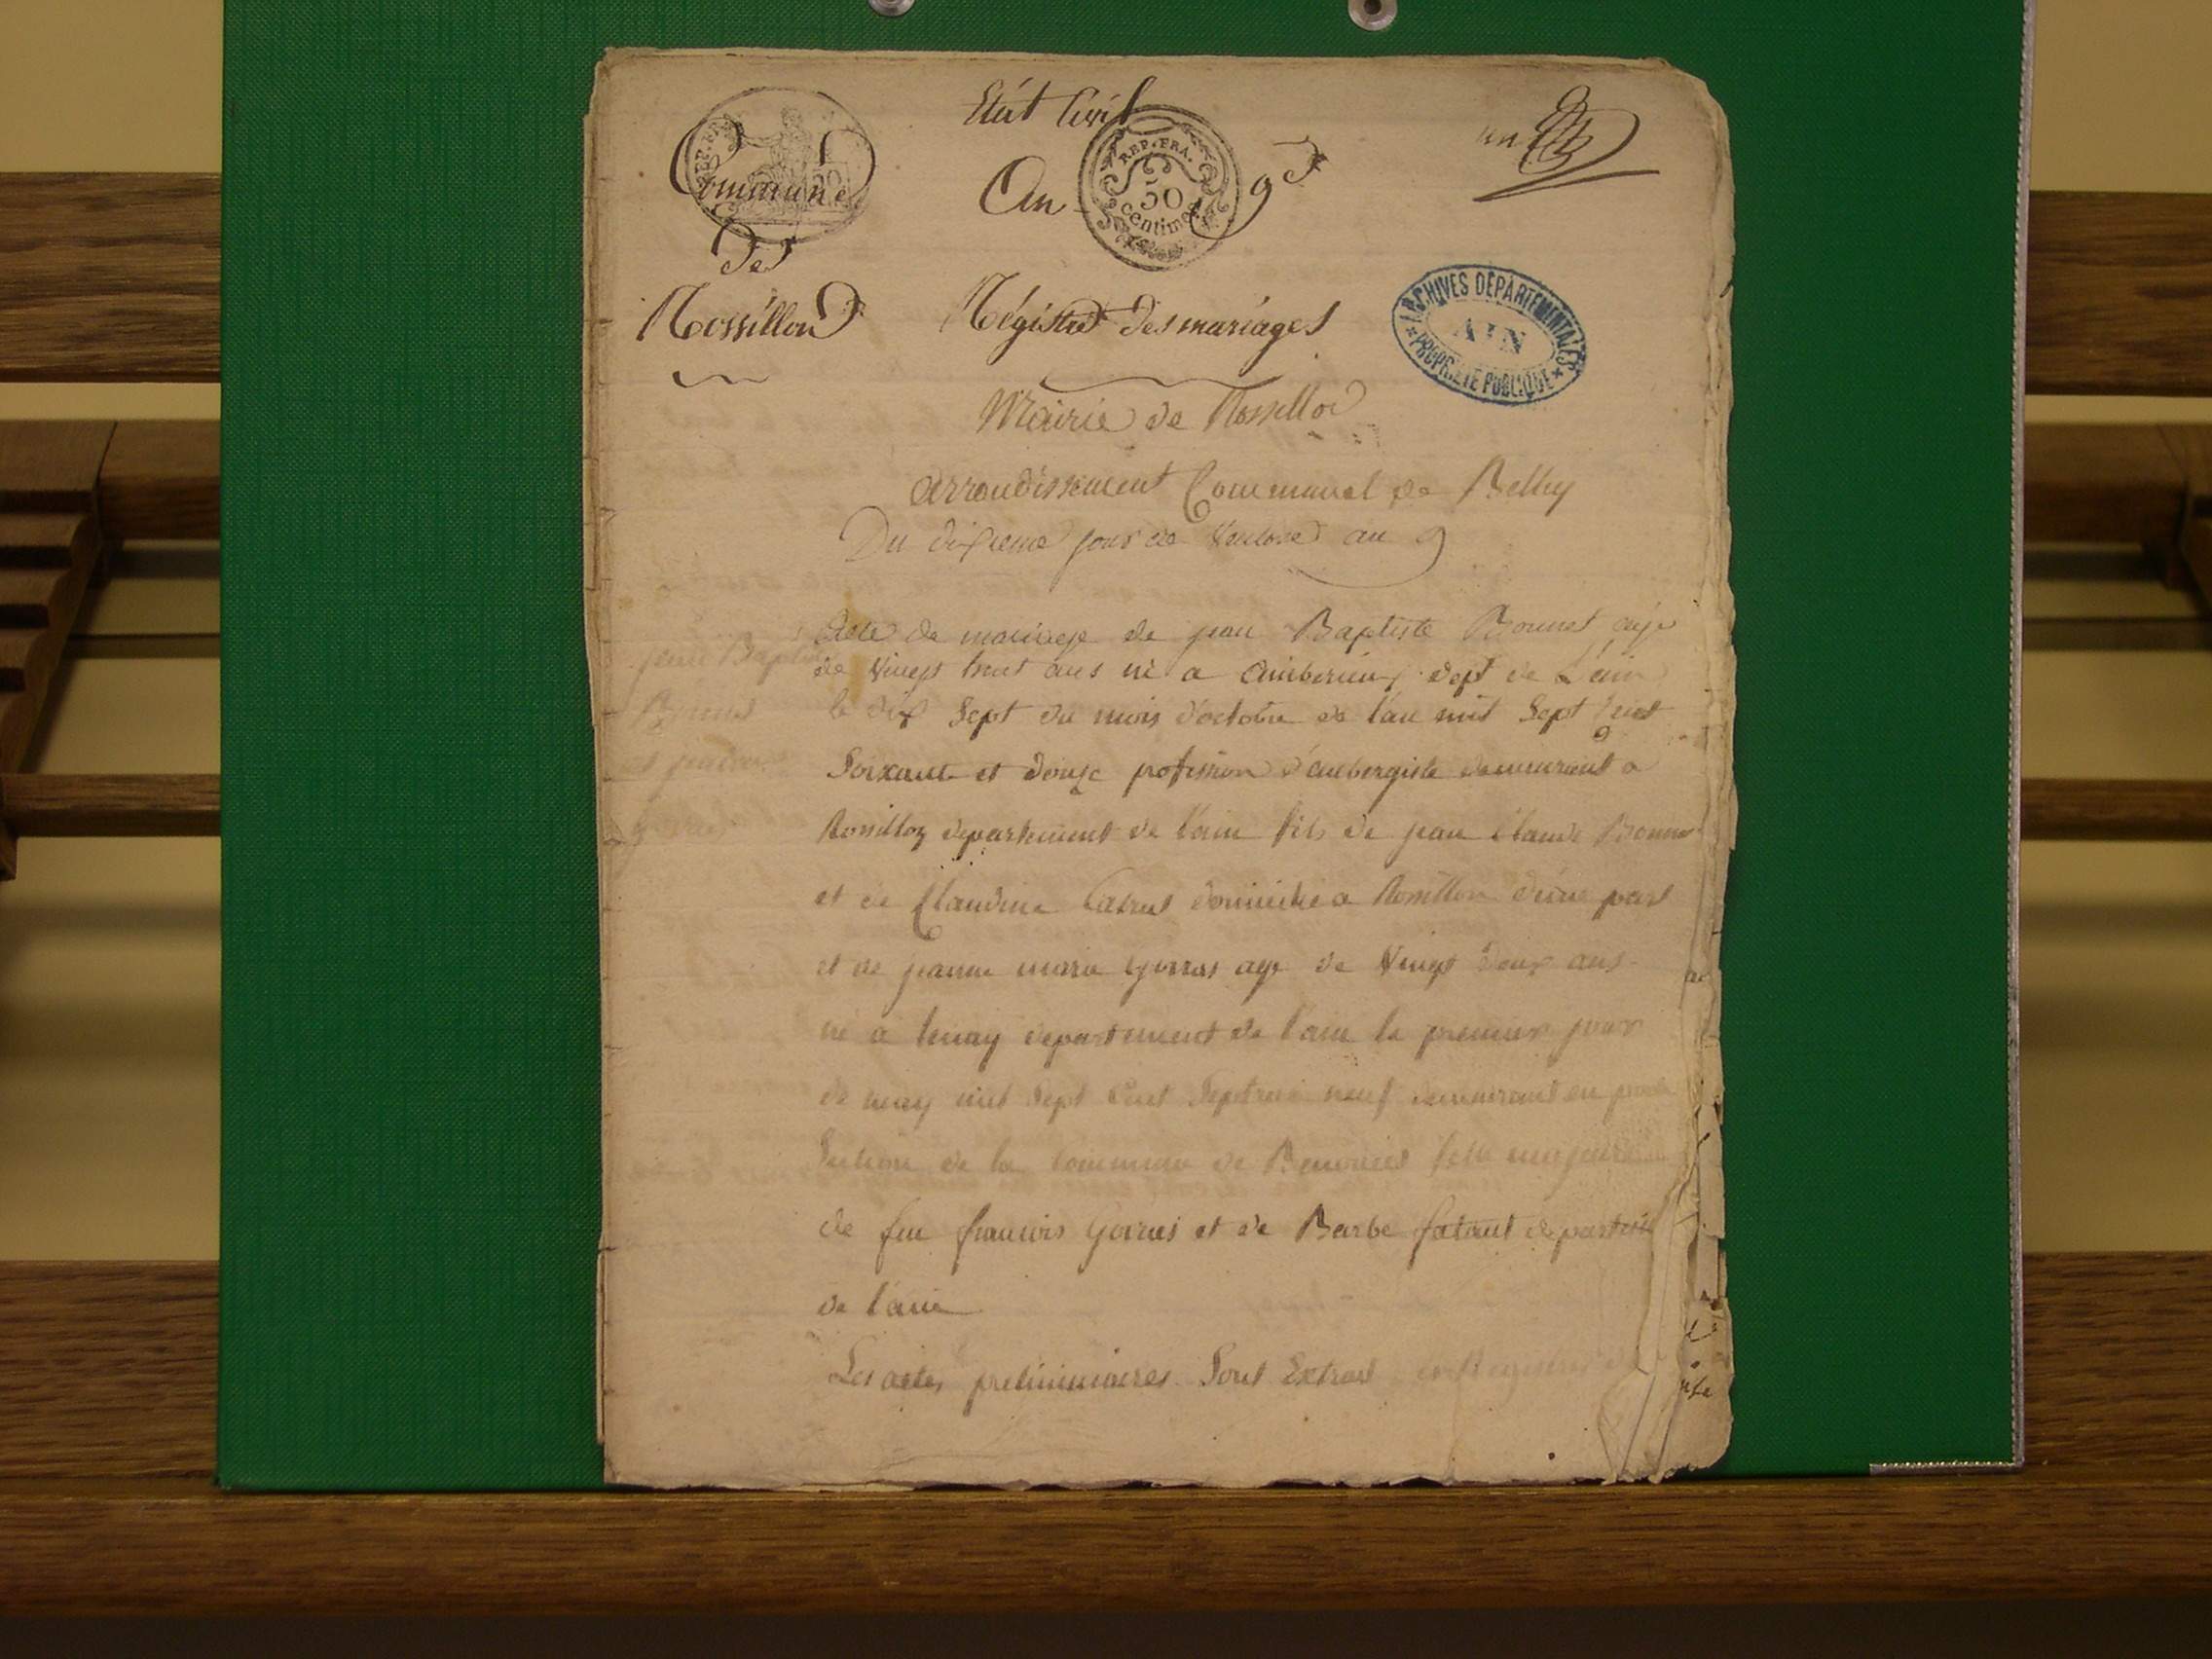 Etat Civil
Commune
de
Rossillon
REP. FRA.
An 9
REP. FRA.
50
centimes
un
Régistre des mariages
ARCHIVES DEPARTEMENTALES
AIN
PROPRIÉTÉ PUBLIQUE
Mairie de Rossillon
arrondissement Communal de Belley
Du dixieme jour de Ventose an 9
jean Baptiste
Bonnet
Acte de mariage de jean Baptiste Bonnet agé
de Vingt huit ans né a amberieux dept de L'ain
le dix Sept du mois d'octobre de l'an mil Sept Cent
Soixante et douze profession d'aubergiste demeurant a
Rossillon departement de l'ain fils de jean Claude Bonnet
et de Claudine domicilié a Rossillon d'une part
et de jeanne marie agé de Vingt deux ans
né a tenay departement de l'ain le premier jour
de may mil Sept Cent Septente neuf demeurant en
de la Commune de fille majeure
de feu francois et de Barbe departement
de l'ain
Les actes preliminaires Sont Extrait